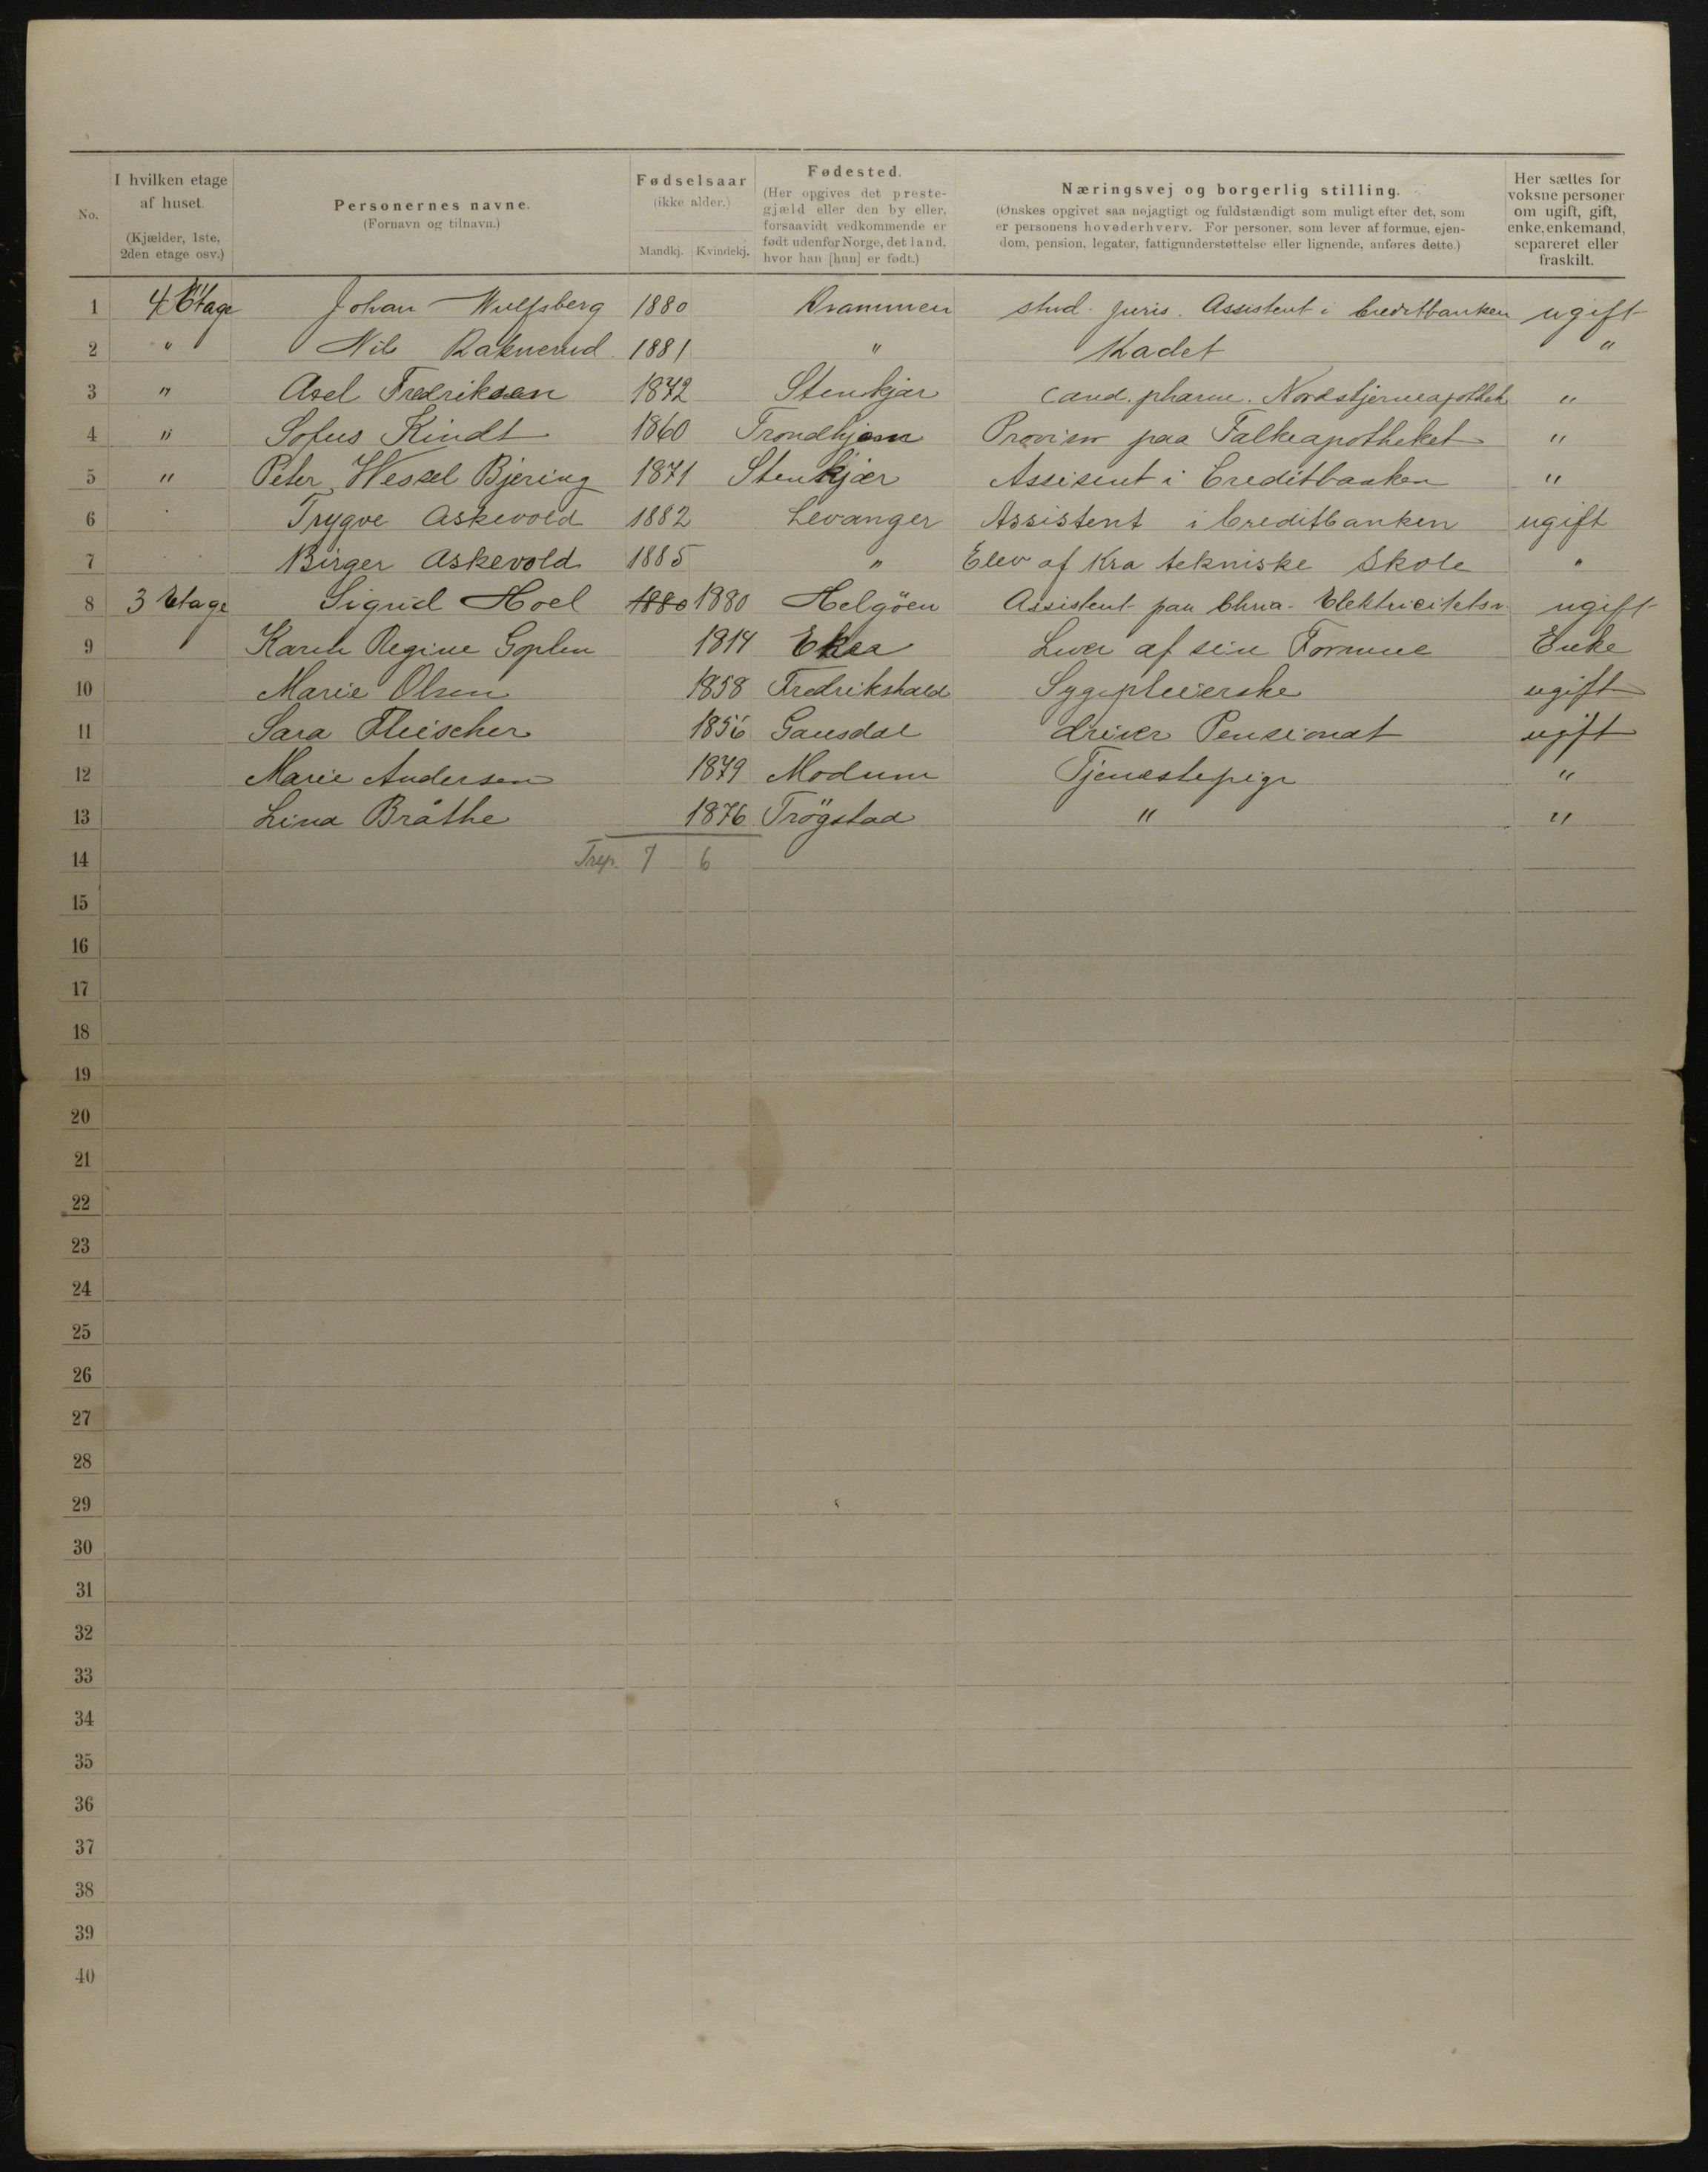 No.
I hvilken etage af huset. (Kjælder, 1ste, 2den etage osv.)
Personernes navne. (Fornavn og tilnavn.)
Fødselsaar (ikke alder.) Mandkj. Kvindekj.
Fødested. (Her opgives det prestegjæld eller den by eller, forsaavidt vedkommende er født udenfor Norge, det land, hvor han [hun] er født.)
Næringsvej og borgerlig stilling. (Ønskes opgivet saa nøjagtigt og fuldstændigt som muligt efter det, som er personens hovederhverv. For personer, som lever af formue, ejendom, pension, legater, fattigunderstøttelse eller lignende, anføres dette.)
Her sættes for voksne personer om ugift, gift, enke, enkemand, separeret eller fraskilt.
1 4 Etage Johan Wulfsberg 1880 Drammen stud. juris. Assistent i Creditbanken ugift
2 " Nils Raknerud 1881 " Kadet "
3 " Axel Fredriksen 1872 Stenkjær cand. pharm. Nordstjerneapothek "
4 " Sofus Kindt 1860 Trondhjem Provisor paa Falkeapotheket "
5 " Peter Wessel Bjering 1871 Stenkjær Assisent i Creditbanken "
6 Trygve Askevold 1882 Levanger Assistent i Creditbanken ugift
7 Birger Askevold 1885 " Elev af Kra tekniske Skole "
8 3 Etage Sigrid Hoel 1880 1880 Helgöen Assistent paa Chria. Elektricitetsv. ugift
9 Karen Regine Goplen 1814 Eker Lever af sin Formue Enke
10 Marie Olsen 1858 Fredrikshald Sygepleierske ugift
11 Sara Fleischer 1856 Gausdal driver Pensionat ugift
12 Marie Andersen 1879 Modum Tjenestepige "
13 Lina Bråthe 1876 Trögstad " "
14 7 6
15
16
17
18
19
20
21
22
23
24
25
26
27
28
29
30
31
32
33
34
35
36
37
38
39
40